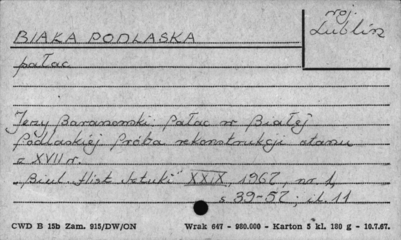 woj.
Lublin
BIAŁA PODLASKA
pałac
Jerzy Baranowski: Pałac w Białej
Podlaskiej Próba rekonstrukcji stanu
z XVII w.
„Biul. Hist. Sztuki" XXIX, 1967, nr 1,
s 39-57; il. 11
CWD B 15b Zam. 915/DW/ON Wrak 647 - 980.000 - Karton 5 kl. 180 g - 10.7.67.